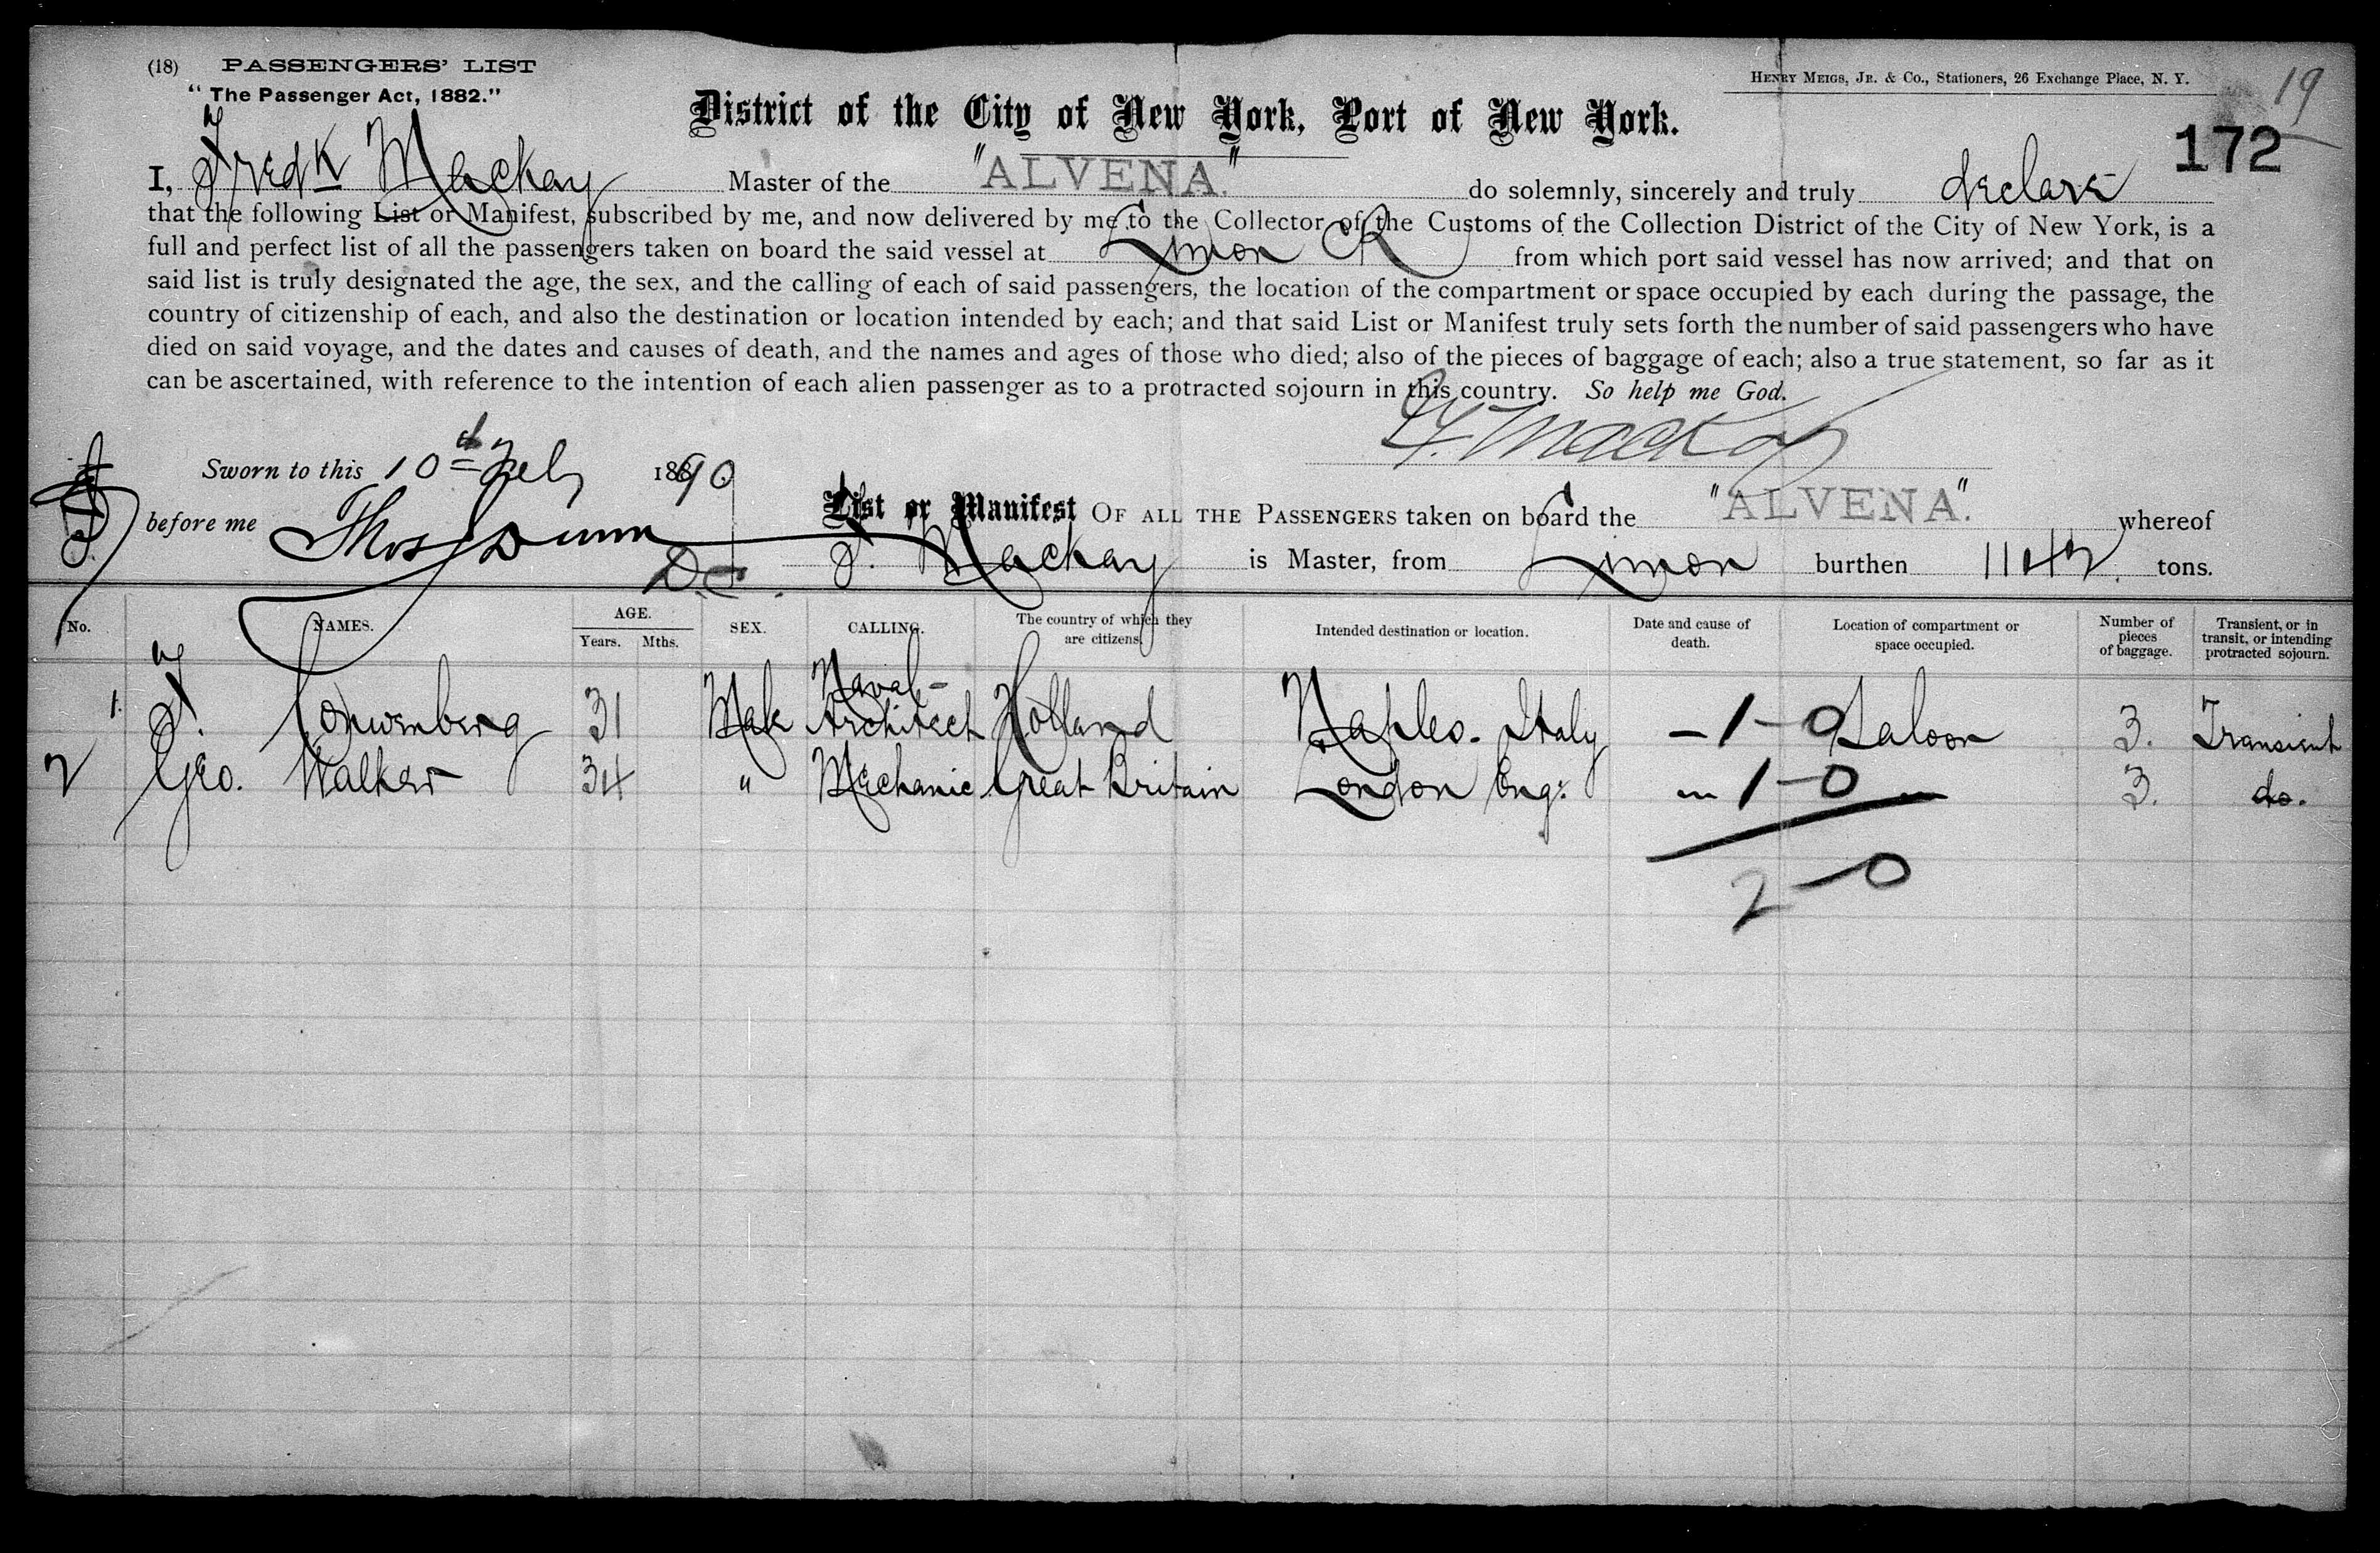 (18) PASSENGERS' LIST
HENRY MEIGS, JR. & Co., Stationers, 26 Exchange Place, N. Y.
19
"The Passenger Act, 1882."
District of the City of New York, Port of New York.
172
I, Fredk Mackay Master of the "ALVENA." do solemnly, sincerely and truly declare
that the following List or Manifest, subscribed by me, and now delivered by me to the Collector of the Customs of the Collection District of the City of New York, is a
full and perfect list of all the passengers taken on board the said vessel at Limon CR from which port said vessel has now arrived; and that on
said list is truly designated the age, the sex, and the calling of each of said passengers, the location of the compartment or space occupied by each during the passage, the
country of citizenship of each, and also the destination or location intended by each; and that said List or Manifest truly sets forth the number of said passengers who have
died on said voyage, and the dates and causes of death, and the names and ages of those who died; also of the pieces of baggage of each; also a true statement, so far as it
can be ascertained, with reference to the intention of each alien passenger as to a protracted sojourn in this country. So help me God.
F. Mackay
Sworn to this 10th Feby 1890
before me Thos Dunn
D.C.
List or Manifest OF ALL THE PASSENGERS taken on board the "ALVENA". whereof
F. Mackay is Master, from Limon burthen 1142 tons.
No. NAMES. AGE. Years. Mths. SEX. CALLING. The country of which they are citizens. Intended destination or location. Date and cause of death. Location of compartment or space occupied. Number of pieces of baggage. Transient, or in transit, or intending protracted sojourn.
1. F. 31 Male Naval Architect Holland Naples. Italy - 1 - 0 Saloon 3. Transient
2 Geo. Walker 34 " Mechanic Great Britain London Eng: " 1 - 0 " 3. do.
2 - 0